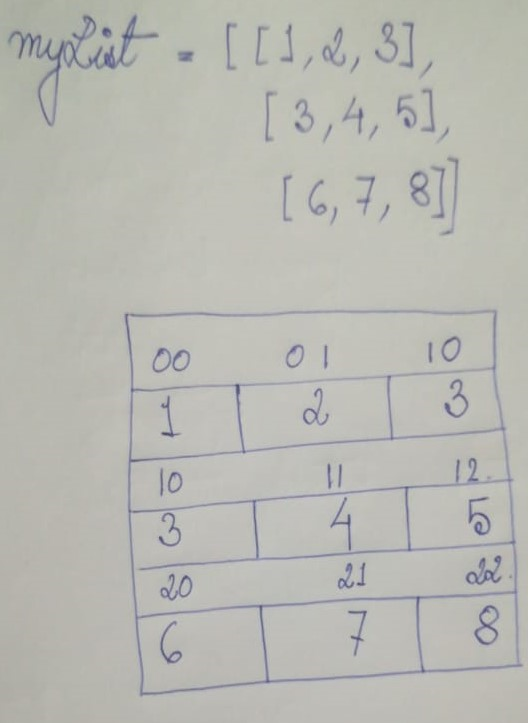 myList = [[1, 2, 3],
[3, 4, 5],
[6, 7, 8]]
00 01 10
1 2 3
10 11 12.
3 4 5
20 21 22.
6 7 8